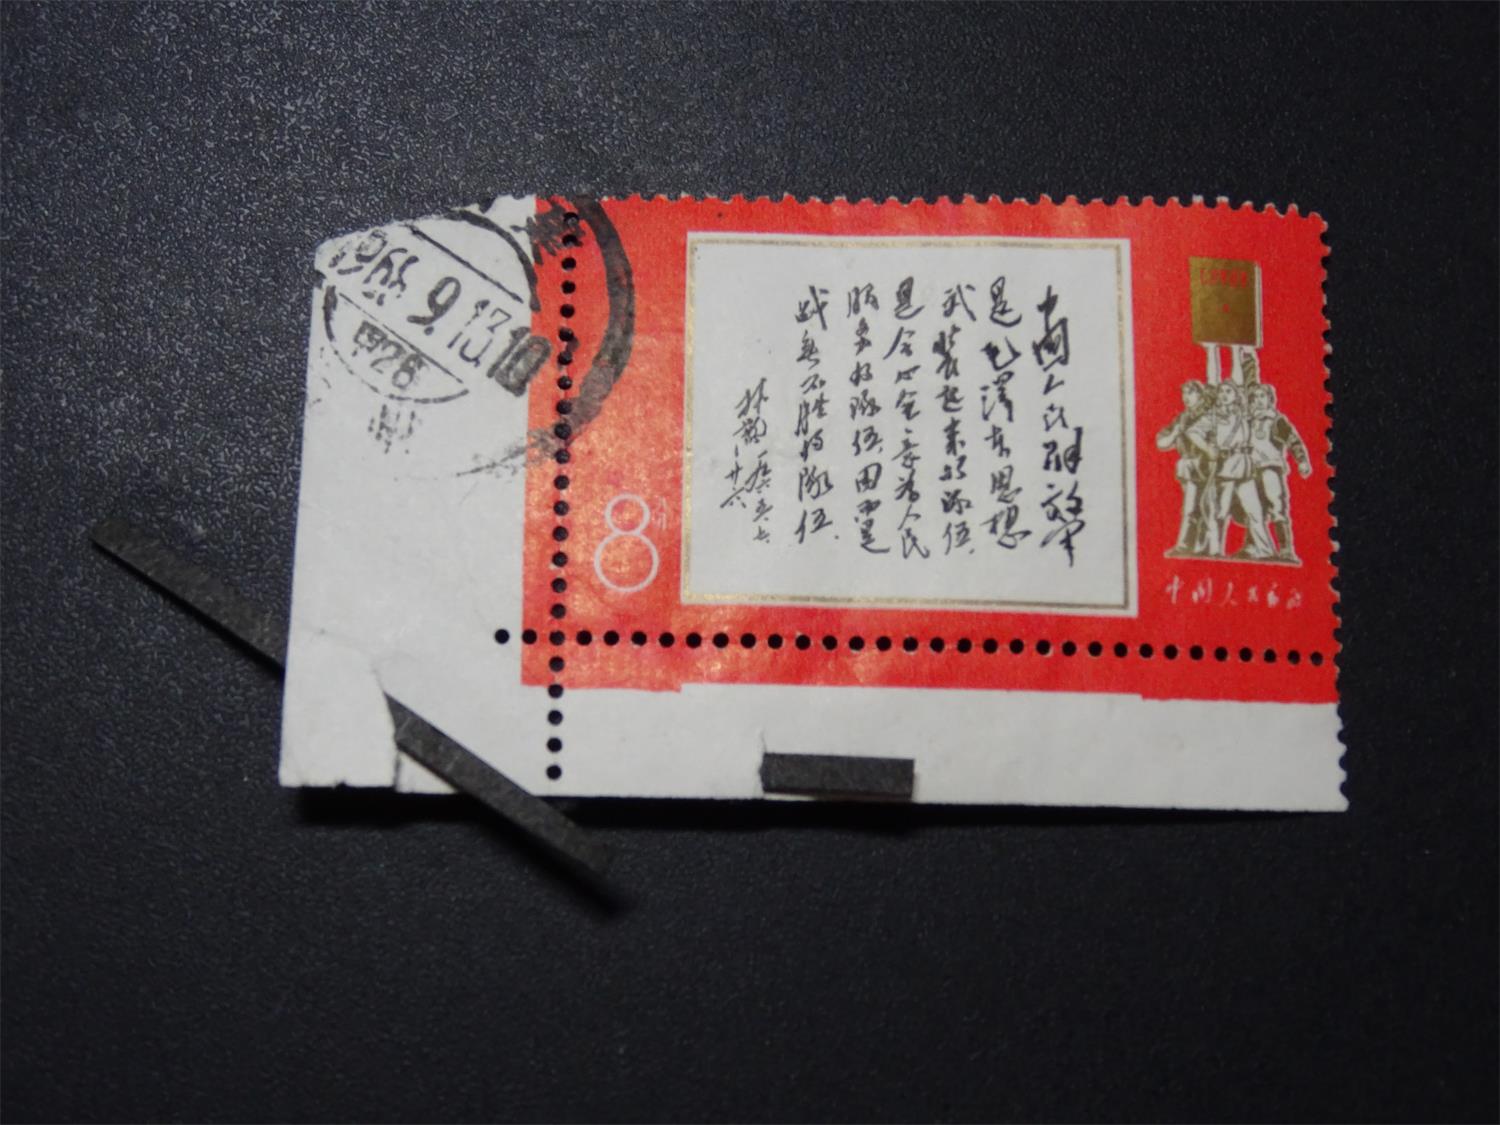 中国人民解放军
是毛泽东思想
武装起来的队伍，
是全心全意为人民
服务的队伍，因而是
战无不胜的队伍。
林彪
一九六五、七、
廿六
8分
中国人民邮政
1968.9.13.10